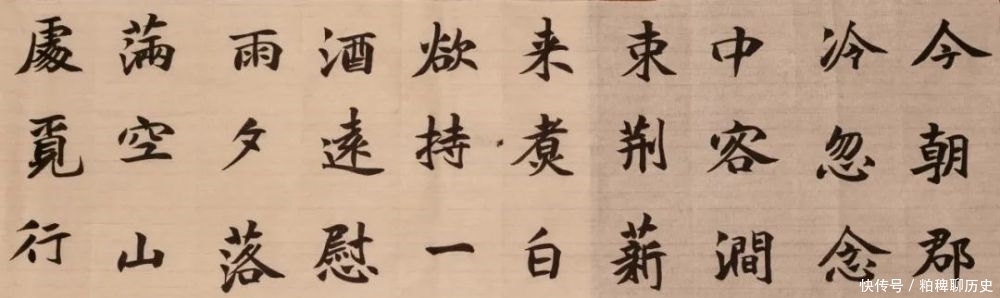 今朝郡
冷忽念
中客澗
束荆薪
来煮白
欲持一
酒遠慰
雨夕落
滿空山
處覓行
快传号/粕稗聊历史